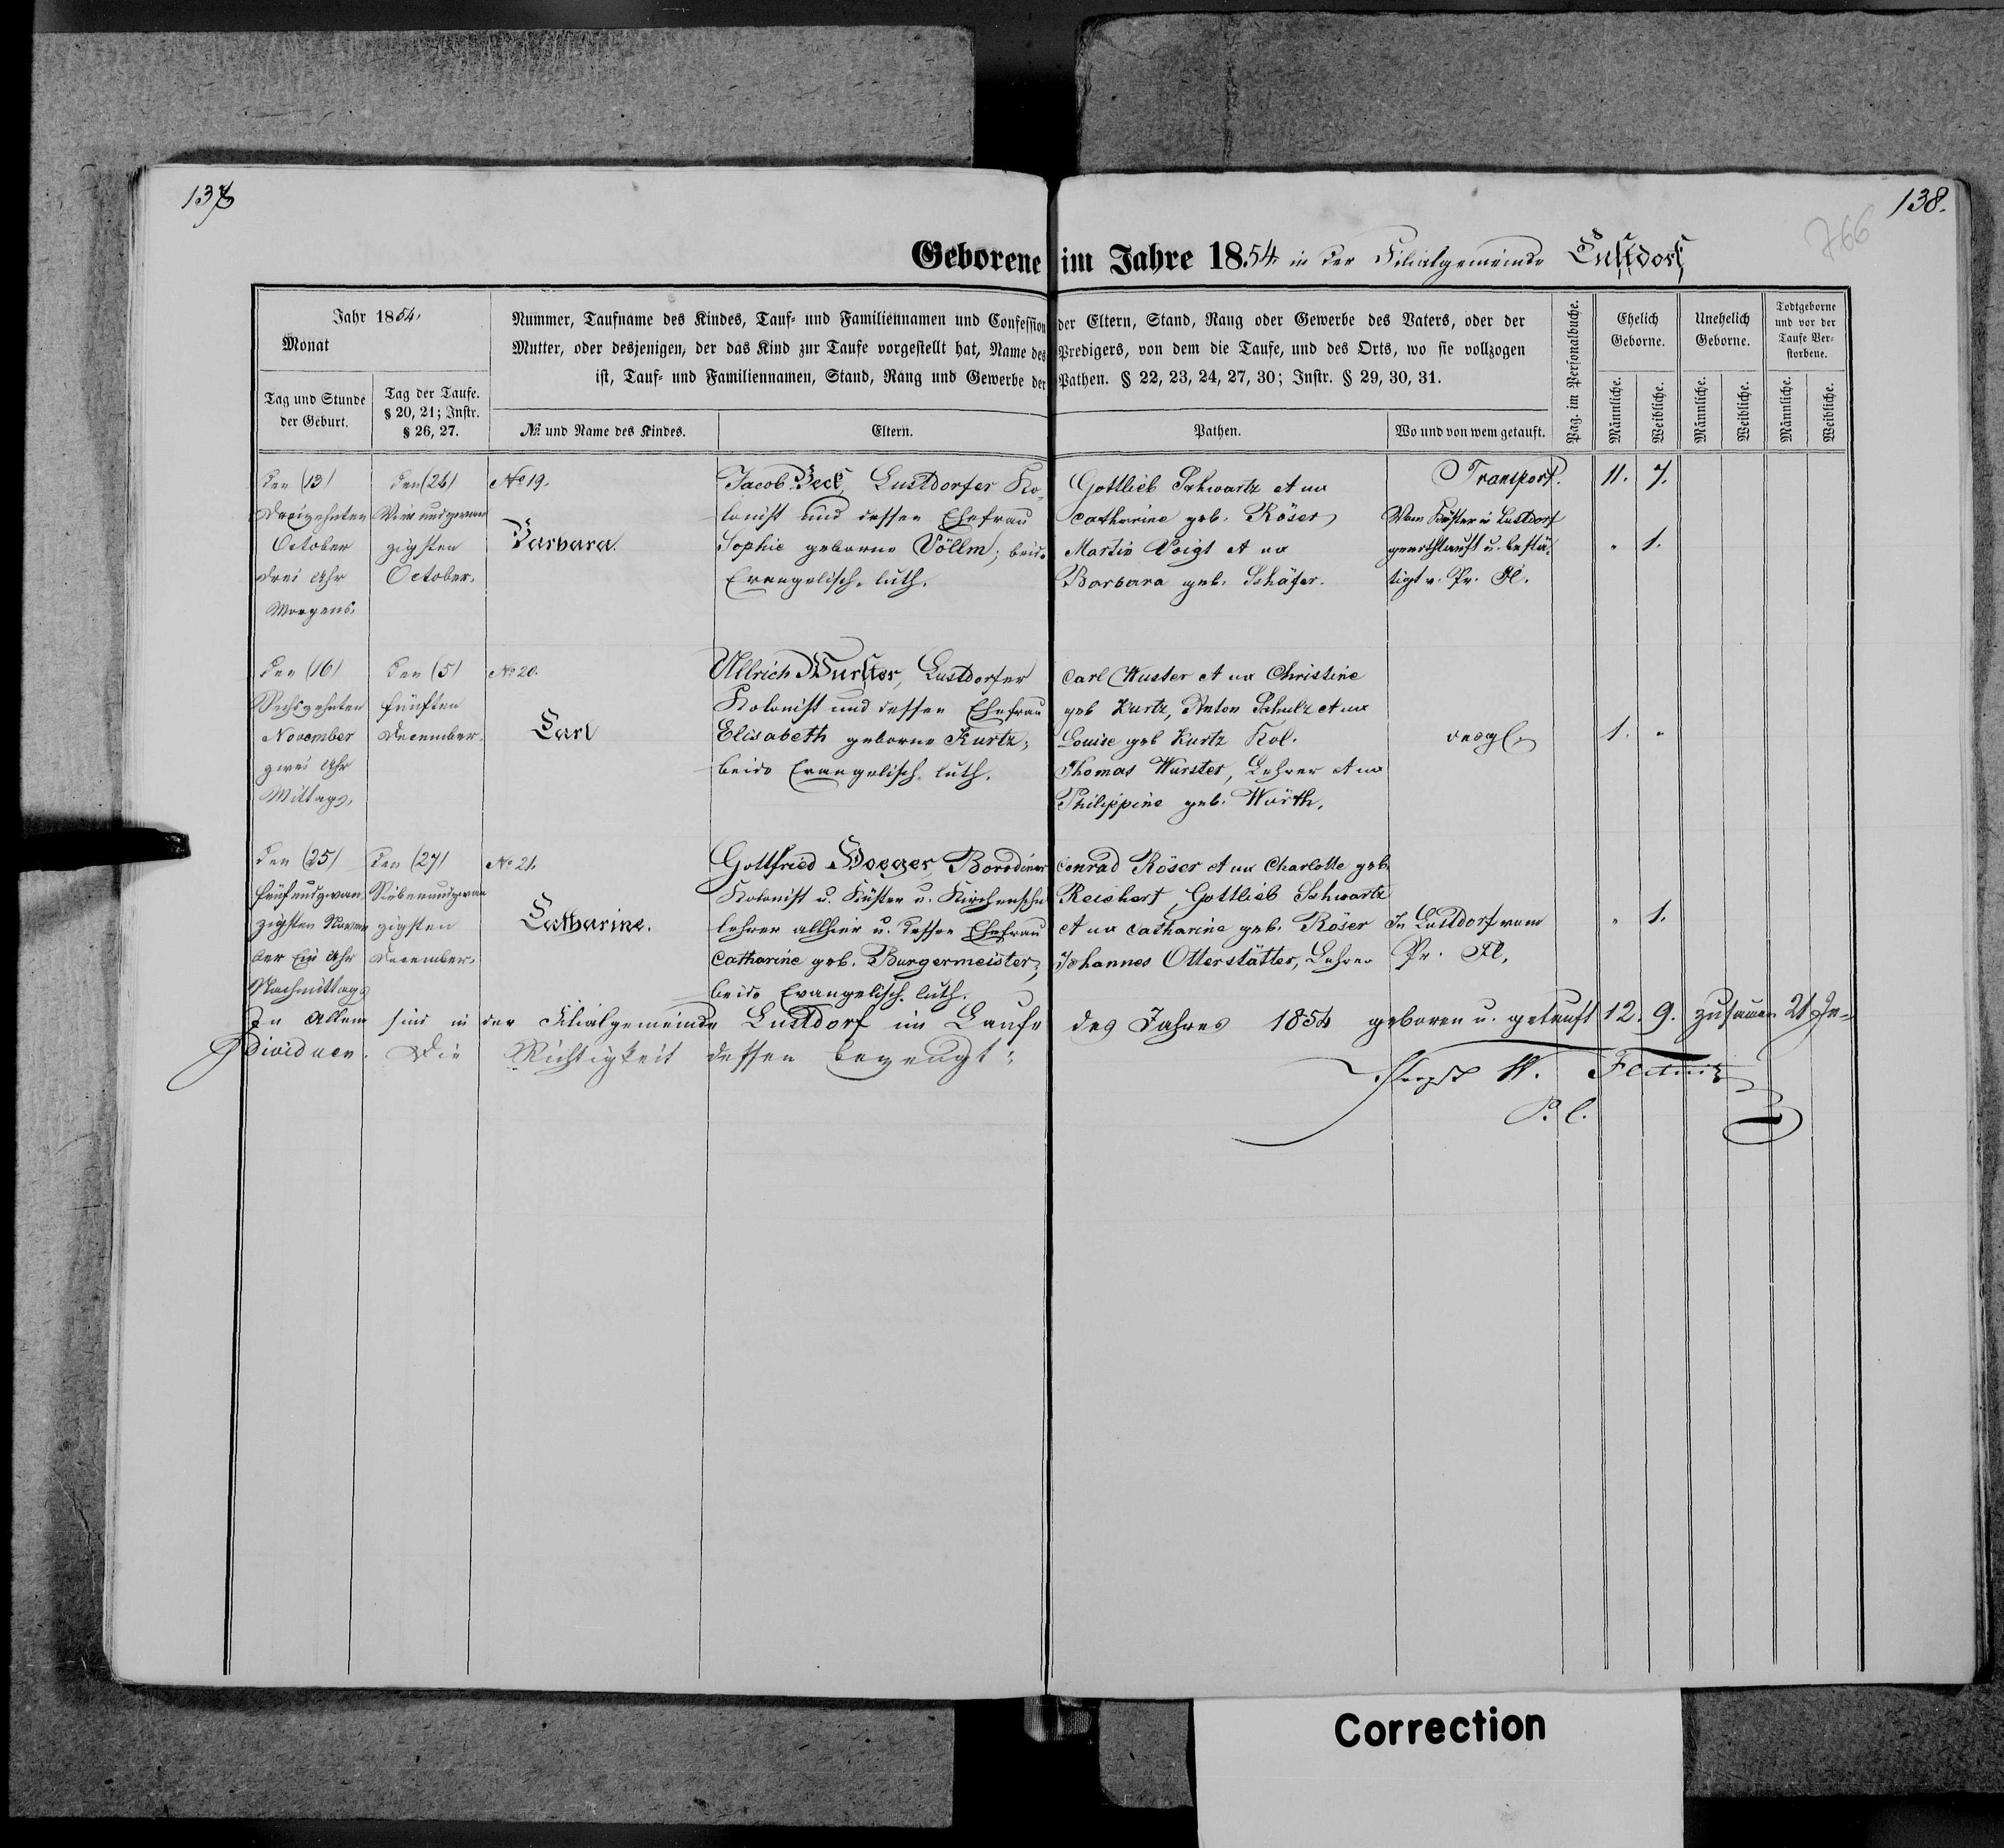 137
138.
766
Geborene im Jahre 1854 in der Filialgemeinde Lustdorf
Jahr 1854.
Monat
Tag und Stunde
der Geburt.
Tag der Taufe.
§ 20, 21; Instr.
§ 26, 27.
Nummer, Taufname des Kindes, Tauf- und Familiennamen und Confession der Eltern, Stand, Rang oder Gewerbe des Vaters, oder der
Mutter, oder desjenigen, der das Kind zur Taufe vorgestellt hat, Name des Predigers, von dem die Taufe, und des Orts, wo sie vollzogen
ist, Tauf- und Familiennamen, Stand, Rang und Gewerbe der Pathen. § 22, 23, 24, 27, 30; Instr. § 29, 30, 31.
№ und Name des Kindes.
Eltern.
Pathen.
Wo und von wem getauft.
Pag. im Personalbuche.
Ehelich
Geborne.
Unehelich
Geborne.
Todtgeborne
und vor der
Taufe Ver-
storbene.
Männliche.
Weibliche.
Männliche.
Weibliche.
Männliche.
Weibliche.
Transport. 11. 7.
den (13)
Dreizehnten
October
drei Uhr
Morgens.
den (24)
Vier und zwan
zigsten
October.
No 19.
Barbara.
Jacob Beck, Lustdorfer Ko-
lonist und dessen Ehefrau
Sophie geborne Völlm; beide
Evangelisch-luth.
Gottlieb Schwartz et ux
Catharine geb. Röser
Martin Voigt et ux
Barbara geb. Schäfer.
Vom Küster in Lustdorf
genothtauft u. bestä-
tigt v. Pr. Fl.
" 1.
den (16)
Sechszehnten
November
zwei Uhr
Mittags.
den (5)
fünften
December.
No 20.
Carl
Ullrich Wurster, Lustdorfer
Kolonist und dessen Ehefrau
Elisabeth geborne Kurtz;
beide Evangelisch-luth.
Carl Wuster et ux Christine
geb Kurtz, Anton Schulz et ux
Louise geb Kurtz Kol.
Thomas Wurster, Lehrer et ux
Philippine geb. Würth.
desgl.
1. "
den (25)
fünfundzwan
zigsten Novem
ber Ein Uhr
Nachmittags
den (27)
Siebenundzwan
zigsten
December.
No 21.
Catharine.
Gottfried Borodiner
Kolonist u. Küster u. Kirchenschul
lehrer allhier u. dessen Ehefrau
Catharine geb. Burgermeister;
beide Evangelisch-luth.
Conrad Röser et ux Charlotte geb.
Reichert, Gottlieb Schwartz
et ux Catharine geb. Röser
Johannes Otterstätter, Lehrer
In Lustdorf vom
Pr. Fl.
" 1.
In Allem sind in der Filialgemeinde Lustdorf im Laufe des Jahres 1854 geboren u. getauft 12. 9. zusammen 21 In-
dividuen. Die Richtigkeit dessen bezeugt:
Propst W. Fletnitz
P. l.
Correction